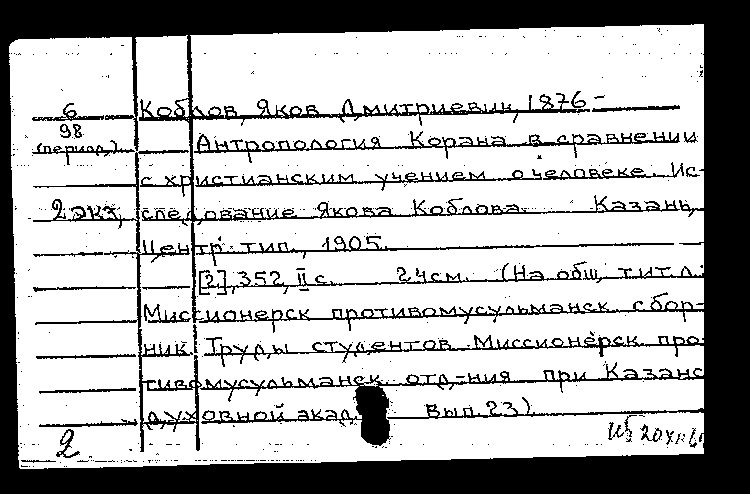 6 Коблов, Яков Дмитриевич, 1876-
98
(период.) Антропология Корана в сравнении
с христианским учением о человеке. Ис-
2 экз. следование Якова Коблова. Казань,
Центр. тип., 1905.
[2], 352, II с. 24см. (На общ. тит. л.:
Миссионерск противомусульманск сбор-
ник. Труды студентов Миссионерск про-
тивомусульманск. отд-ния при Казанс
духовной акад. Вып. 23)
2